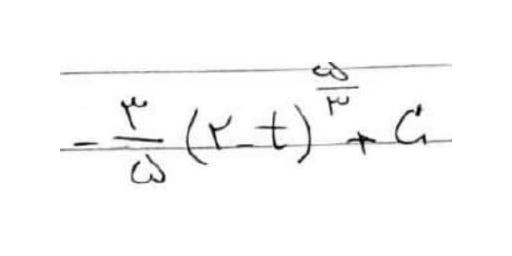 -۳/۵ (۲-t)^(۵/۳) + C